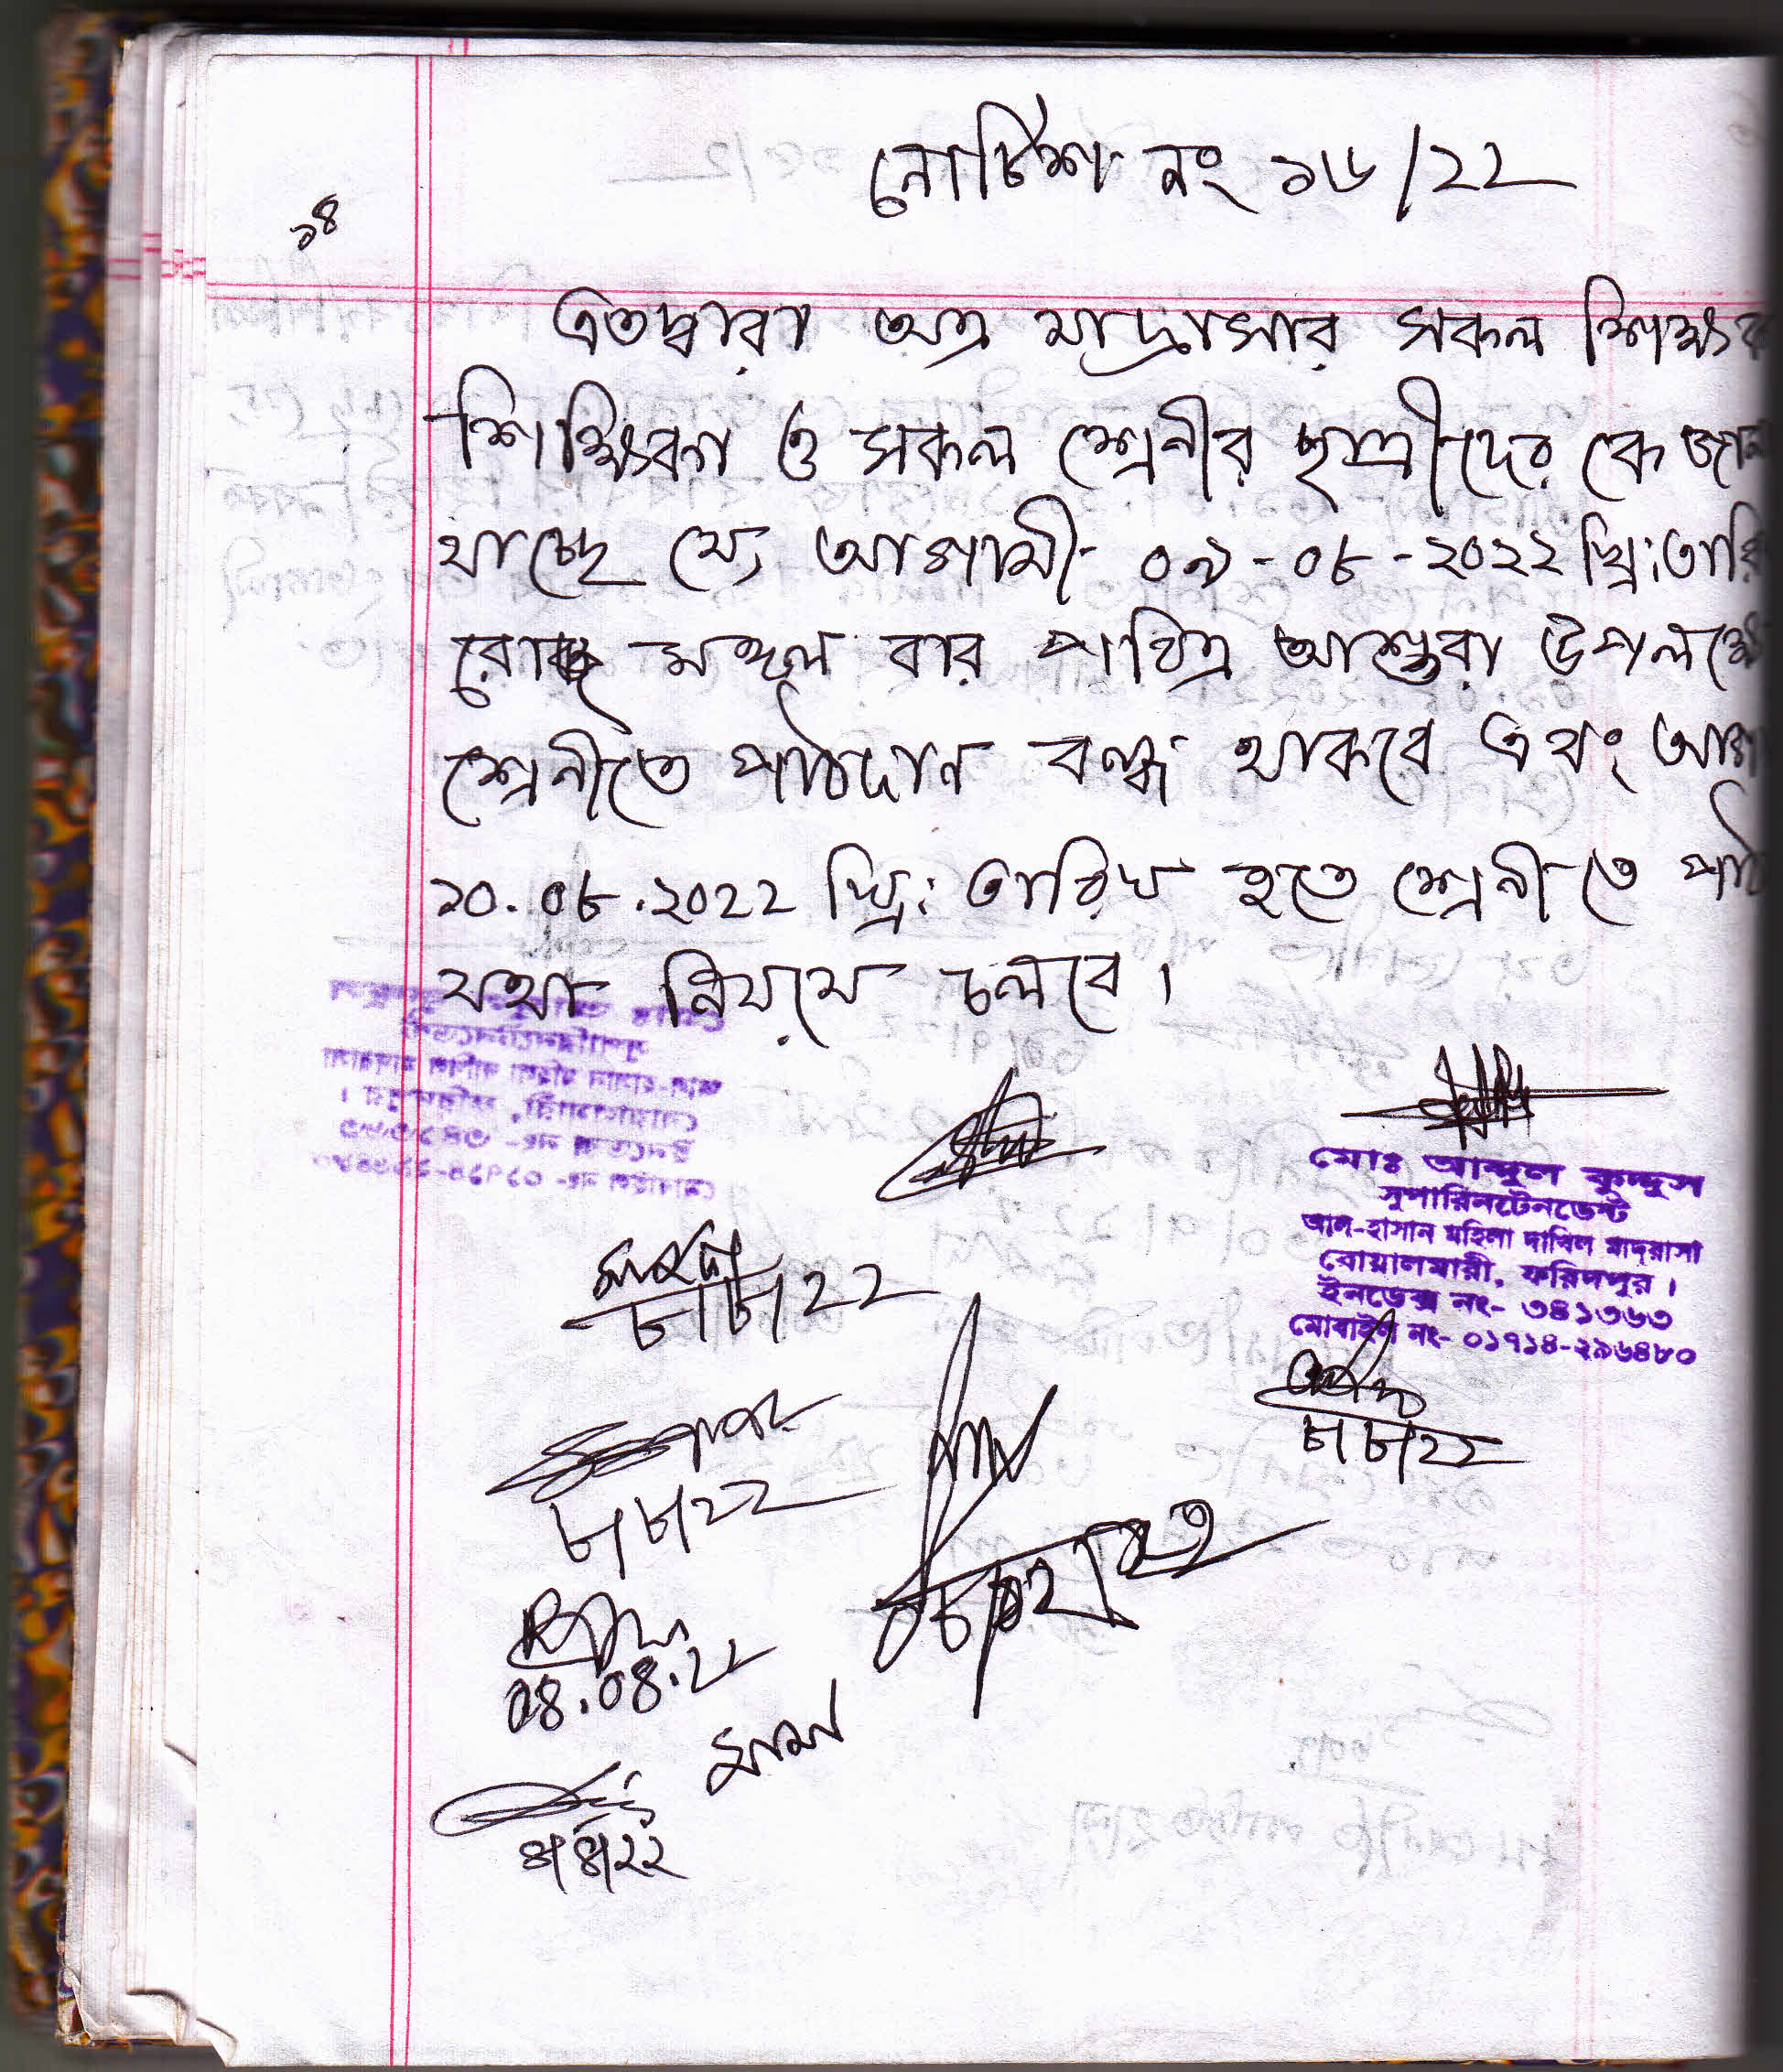 নোটিশ নং ১৬/২২
১৪
এতদ্বারা অত্র মাদ্রাসার সকল শিক্ষক
শিক্ষিকা ও সকল শ্রেনীর ছাত্রীদের কে জানা
যাচ্ছে যে আগামী- ০৯-০৮-২০২২ খ্রি: তারি
রোজ মঙ্গল বার পবিত্র আশুরা উপলক্ষে
শ্রেনীতে পাঠদান বন্ধ থাকবে এবং আগা
১০.০৮.২০২২ খ্রি: তারিখ হতে শ্রেনীতে পাঠ
যথা নিয়মে চলবে।
মোঃ আব্দুল কুদ্দুস
সুপারিনটেনডেন্ট
আল-হাসান মহিলা দাখিল মাদরাসা
বোয়ালমারী, ফরিদপুর।
ইনডেক্স নং- ৩৪১৩৬৩
মোবাইল নং- ০১৭১৪-২৯৬৪৮০
৮/৮/২২
৮/৮/২২
৮/৮/২২
08.08.22